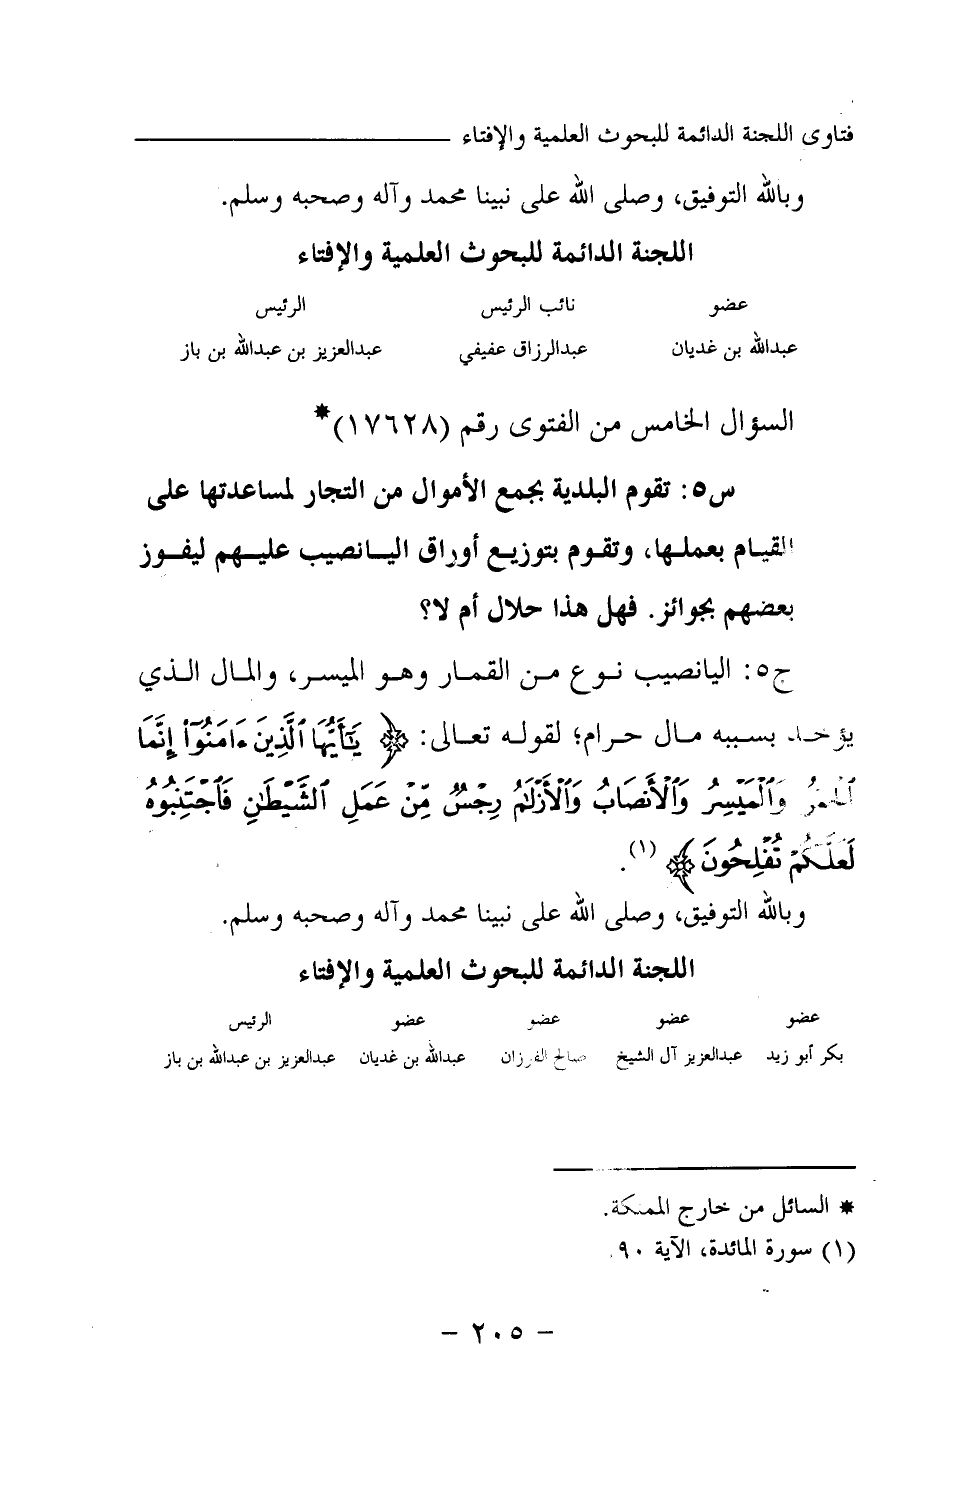 فتاوى اللجنة الدائمة للبحوث العلمية والإفتاء
وبالله التوفيق، وصلى الله على نبينا محمد وآله وصحبه وسلم.
اللجنة الدائمة للبحوث العلمية والإفتاء
عضو نائب الرئيس الرئيس
عبدالله بن غديان عبدالرزاق عفيفي عبدالعزيز بن عبدالله بن باز
السؤال الخامس من الفتوى رقم (١٧٦٢٨)*
س٥: تقوم البلدية بجمع الأموال من التجار لمساعدتها على
القيام بعملها، وتقوم بتوزيع أوراق اليانصيب عليهم ليفوز
بعضهم بجوائز. فهل هذا حلال أم لا؟
ج٥: اليانصيب نوع من القمار وهو الميسر، والمال الذي
يؤخذ بسببه مال حرام؛ لقوله تعالى: ﴿ يَٰٓأَيُّهَا ٱلَّذِينَ ءَامَنُوٓا۟ إِنَّمَا
ٱلْخَمْرُ وَٱلْمَيْسِرُ وَٱلْأَنصَابُ وَٱلْأَزْلَٰمُ رِجْسٌ مِّنْ عَمَلِ ٱلشَّيْطَٰنِ فَٱجْتَنِبُوهُ
لَعَلَّكُمْ تُفْلِحُونَ ﴾ (١).
وبالله التوفيق، وصلى الله على نبينا محمد وآله وصحبه وسلم.
اللجنة الدائمة للبحوث العلمية والإفتاء
عضو عضو عضو عضو الرئيس
بكر أبو زيد عبدالعزيز آل الشيخ صالح الفوزان عبدالله بن غديان عبدالعزيز بن عبدالله بن باز
* السائل من خارج المملكة.
(١) سورة المائدة، الآية ٩٠.
- ٢٠٥ -